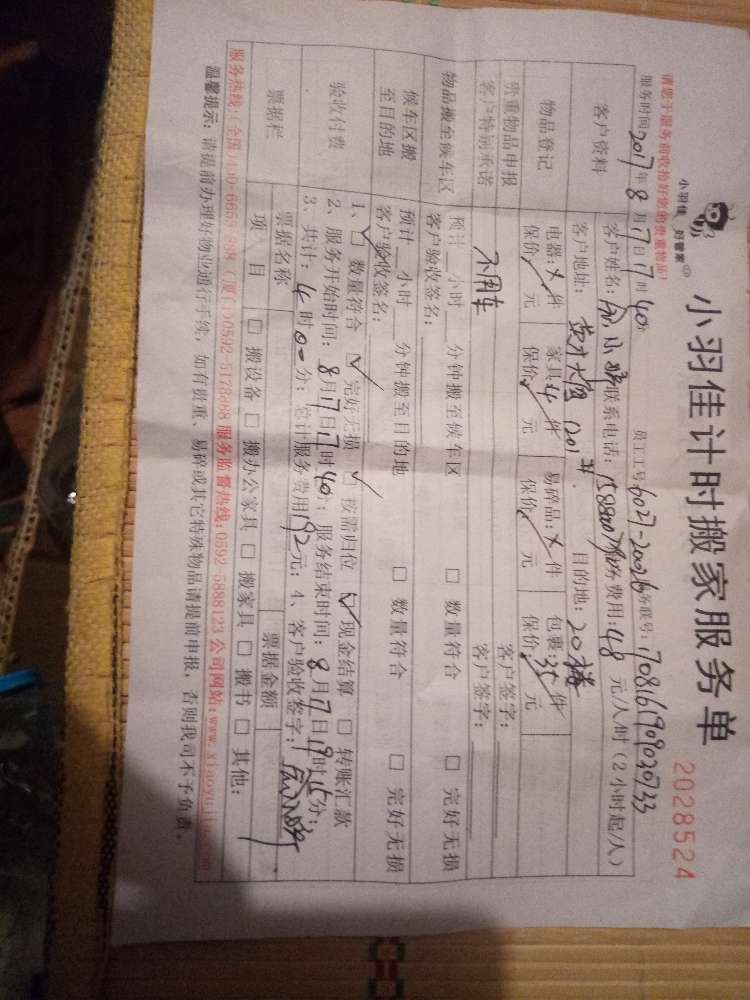 小羽佳计时搬家服务单
2028524
小羽佳 好管家
请您于服务前收拾好您的贵重物品!
服务时间:2017年8月17日17时40 员工工号:6027-20026 务联号:170816190920733
客户资料
客户姓名: 小 联系电话: 务费用:48元/人时(2小时起/人)
客户地址: 大 1201# 目的地:20楼
物品登记
电器:×件 家具:4件 易碎品:×件 包裹:35件
保价 元 保价 元 保价 元 保价 元
贵重物品申报 客户签字:
客户特别承诺 不用车 客户签字:
物品搬至候车区
预计__小时__分钟搬至候车区 □ 数量符合 □ 完好无损
客户验收签名:
候车区搬至目的地
预计__小时__分钟搬至目的地 □ 数量符合 □ 完好无损
客户验收签名:
验收付费
1、□ 数量符合 □ 完好无损 □ 按需归位 □ 现金结算 □ 转账汇款
2、服务开始时间:8月17日17时40分;服务结束时间:8月17日19时45分;
3、共计:4时00分;总计服务费用192元;4、客户验收签字:
票据栏
票据名称 票据金额
项 目 □ 搬设备 □ 搬办公家具 □ 搬家具 □ 搬书 □ 其他:
服务热线:(全国)400-6666-888 (厦门)0592-5178888 服务监督热线:0592-5888123 公司网站:www.xiaoyujia.com
温馨提示:请提前办理好物业通行手续,如有贵重、易碎或其它特殊物品请提前申报,否则我司不予负责。